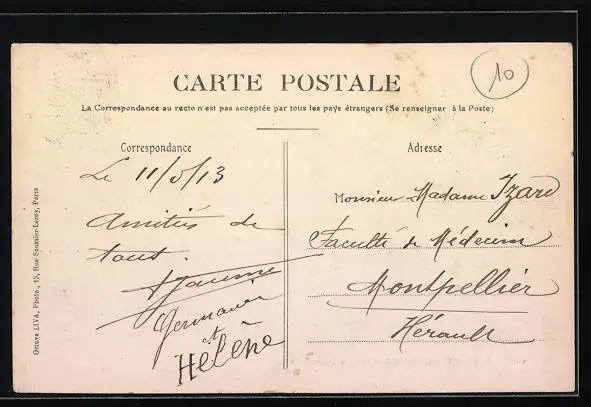 CARTE POSTALE
10
La Correspondance au recto n'est pas acceptée par tous les pays étrangers (Se renseigner à la Poste)
Correspondance
Le 11/5/13
Amitiés de
tous.
Germaine
et
Hélène
Adresse
Monsieur Madame Izard
Faculté de Médecine
Montpellier
Hérault
Octave LIVA, Photo., 15, Rue Saussier-Leroy, Paris